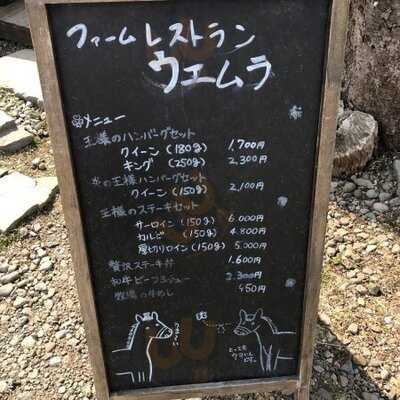 ファームレストラン
ウエムラ
メニュー
王様のハンバーグセット
クイーン(180g) 1,700円
キング (250g) 2,300円
氷の王様ハンバーグセット
クイーン(150g) 2,100円
王様のステーキセット
サーロイン(150g) 6.000円
カルビ (150g) 4.800円
厚切りロイン(150g) 5.000円
贅沢ステーキ丼 1.600円
和牛ビーフシチュー 2.300円
牧場の牛めし 450円